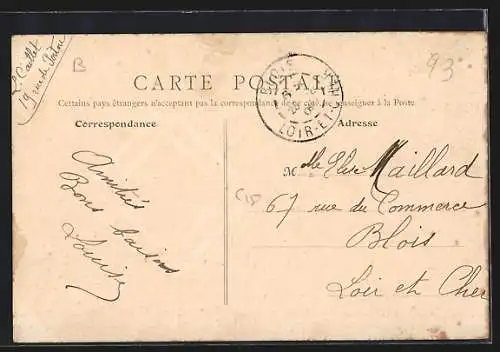 L. Caillet
19 rue du
B
93
CARTE POSTALE
Certains pays étrangers n'acceptant pas la correspondance de ce côté, se renseigner à la Poste
BLOIS
LOIR-ET-CHER
Correspondance
Adresse
Amitiés
Bons baisers
Louise
Mlle Elise Maillard
67 rue du Commerce
Blois
Loir et Cher